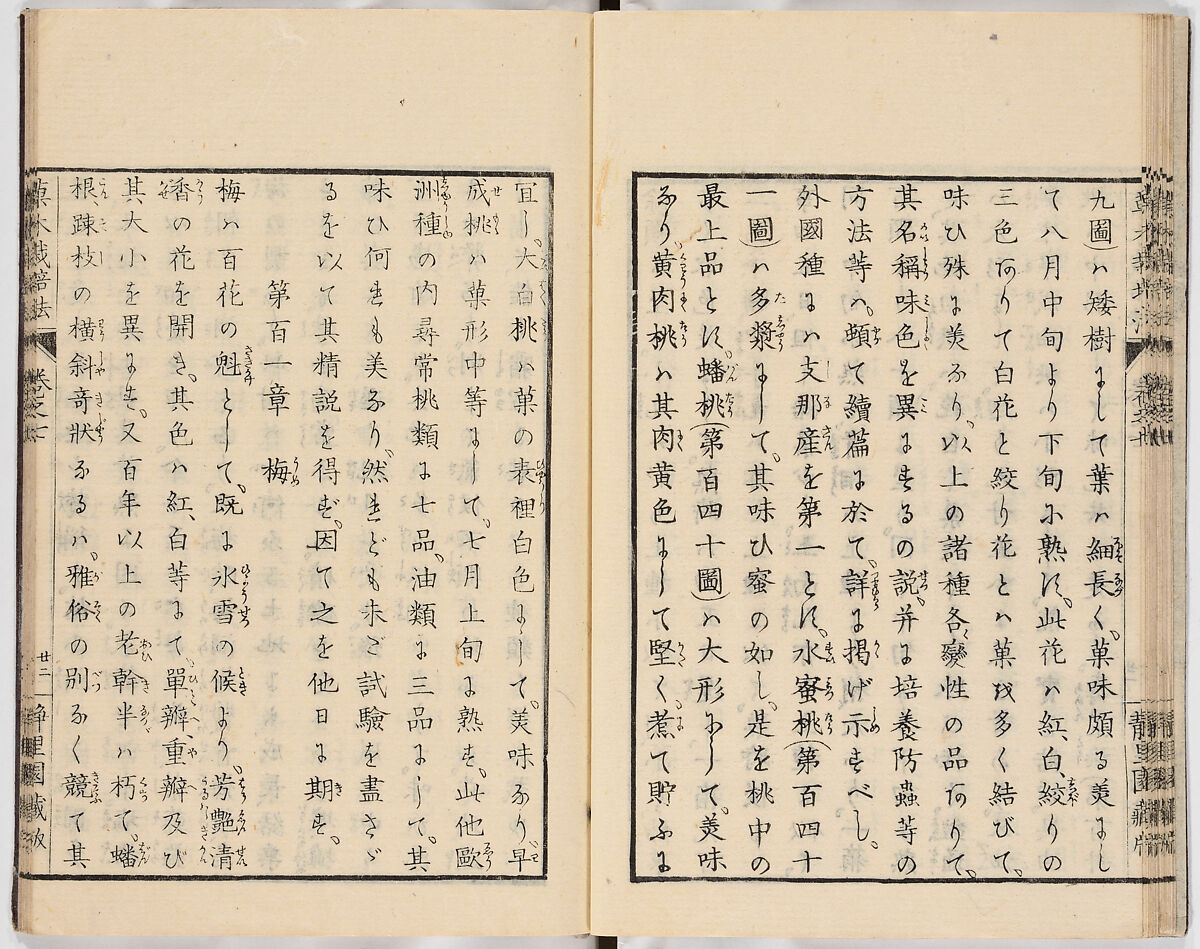 九圖)ハ矮樹にして葉ハ細長く、菓味頗る美にし
て八月中旬より下旬に熟す、此花ハ紅、白、絞りの
三色ありて白花と絞り花とハ菓を多く結びて、
味ひ殊に美なり、以上の諸種各變性の品ありて、
其名稱味色を異にするの説并に培養防蟲等の
方法等ハ、頓て續篇に於て、詳に掲げ示すべし。
外國種にハ支那産を第一とす、水蜜桃(第百四十
一圖)ハ多漿にして、其味ひ蜜の如し、是を桃中の
最上品とす、蟠桃(第百四十圖)ハ大形にして、美味
なり、黄肉桃ハ其肉黄色にして堅く、煮て貯ふに
宜し、大白桃ハ菓の表裡白色にして、美味なり早
成桃ハ菓形中等にして、七月上旬に熟す、此他歐
洲種の内尋常桃類に七品、油類に三品にして、其
味ひ何れも美なり、然れども未だ試驗を盡さゞ
るを以て其精説を得ず、因て之を他日に期す、
第百一章　梅
梅ハ百花の魁として、既に氷雪の候より、芳艶清
香の花を開き、其色ハ紅、白等にて、單瓣、重瓣及び
其大小を異にす、又百年以上の老幹半ハ朽て、蟠
根、疎枝の横斜奇狀なるハ、雅俗の別なく競て其
菓木栽培法
卷之七
廿三
靜里園藏版